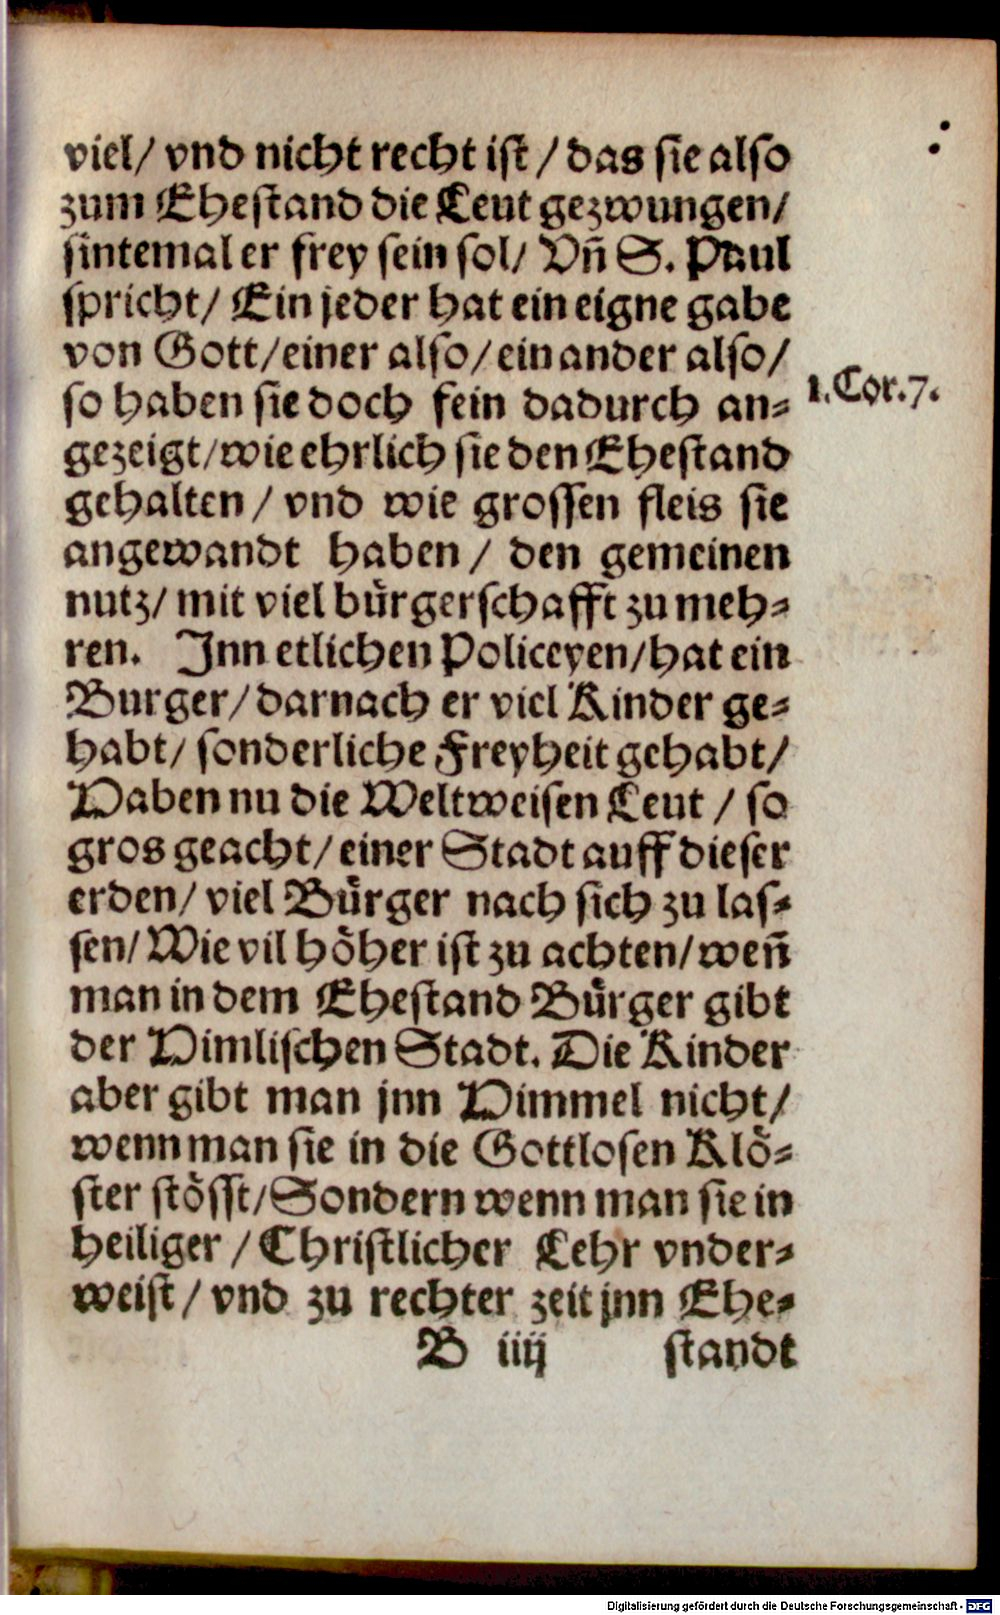 viel/ vnd nicht recht ist / das sie also
zum Ehestand die Leut gezwungen/
sintemal er frey sein sol/ Vñ S. Paul
spricht/ Ein jeder hat ein eigne gabe
von Gott/einer also/ein ander also/
so haben sie doch fein dadurch an-
1.Cor.7.
gezeigt/wie ehrlich sie den Ehestand
gehalten / vnd wie grossen fleis sie
angewandt haben / den gemeinen
nutz/ mit viel bürgerschafft zu meh-
ren. Jnn etlichen Policeyen/hat ein
Burger/darnach er viel Kinder ge-
habt/ sonderliche Freyheit gehabt/
Haben nu die Weltweisen Leut / so
gros geacht/einer Stadt auff dieser
erden/ viel Bürger nach sich zu las-
sen/ Wie vil höher ist zu achten/weñ
man in dem Ehestand Bürger gibt
der Himlischen Stadt. Die Kinder
aber gibt man jnn Himmel nicht/
wenn man sie in die Gottlosen Klö-
ster stösst/Sondern wenn man sie in
heiliger / Christlicher Lehr vnder-
weist / vnd zu rechter zeit jnn Ehe-
B iiij standt
Digitalisierung gefördert durch die Deutsche Forschungsgemeinschaft - DFG